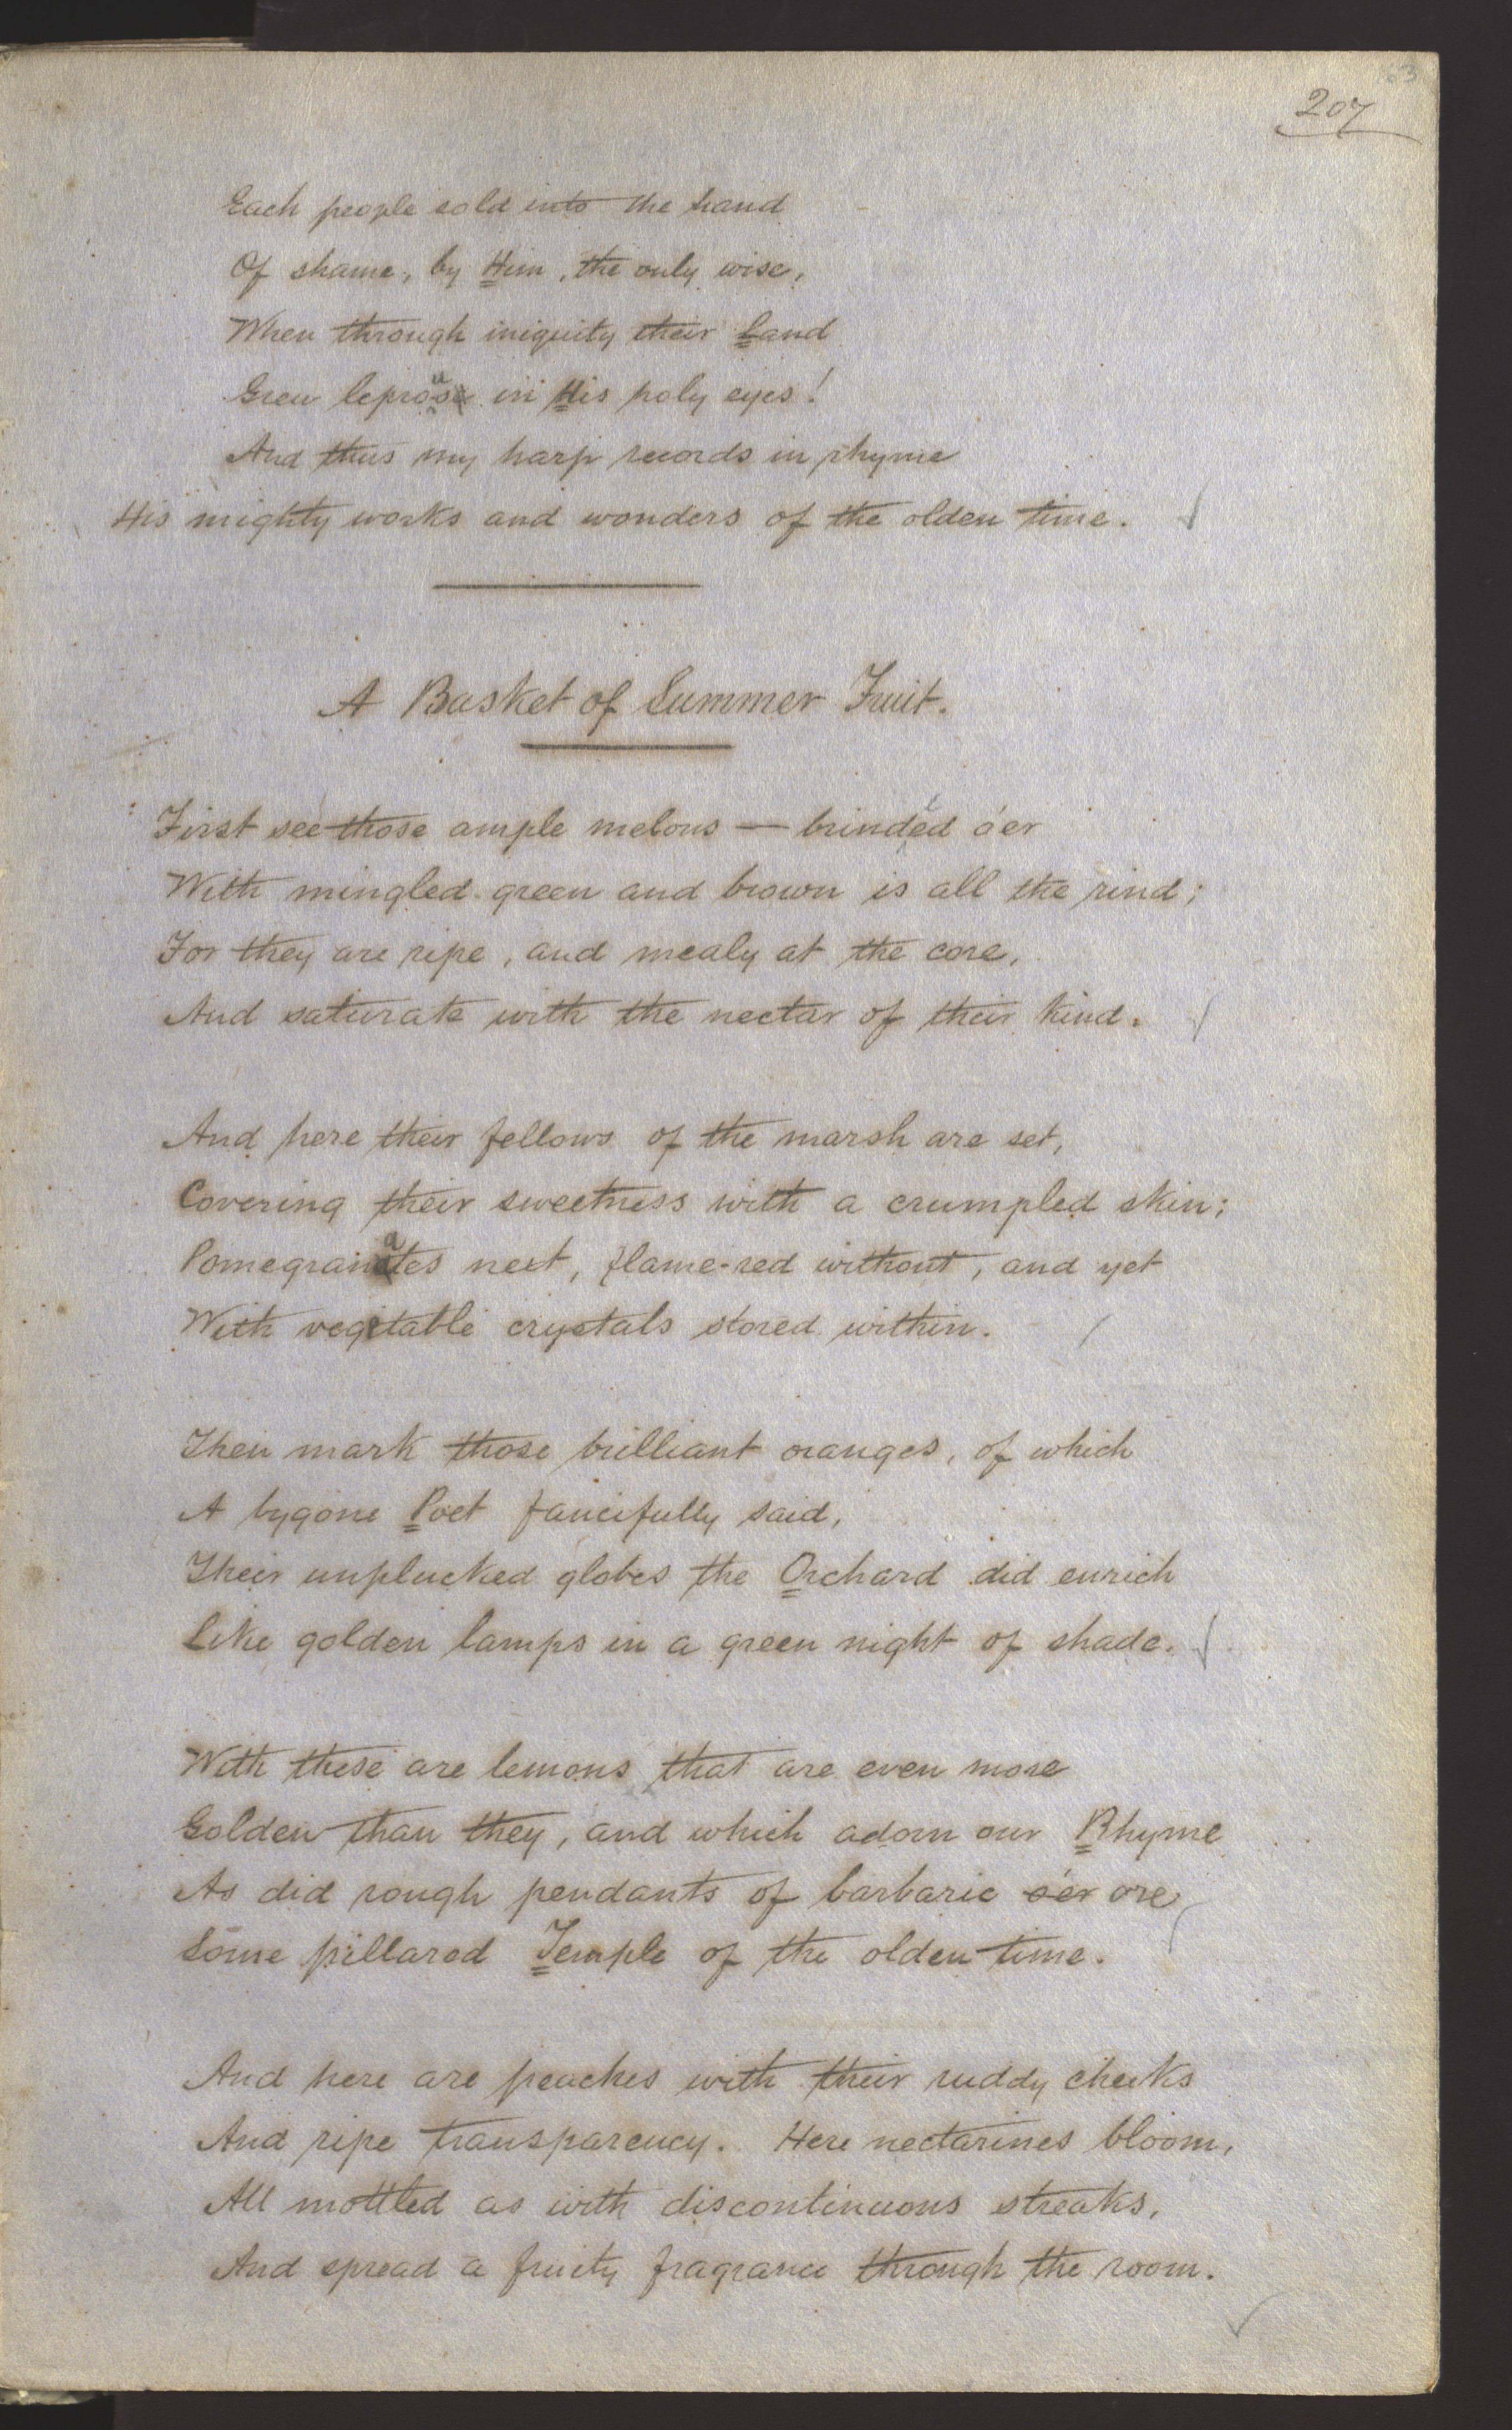 63
207
Each people sold into the hand
Of shame, by Him, the only wise,
When through iniquity their Land
Grew leprous in His holy eyes!
And thus my harp records in rhyme
His mighty works and wonders of the olden time.
A Basket of Summer Fruit.
First see those ample melons — brinded o'er
With mingled green and brown is all the rind;
For they are ripe, and mealy at the core,
And saturate with the nectar of their kind.
And here their fellows of the marsh are set,
Covering their sweetness with a crumpled skin;
Pomegranates next, flame-red without, and yet
With vegetable crystals stored within.
Then mark those brilliant oranges, of which
A bygone Poet fancifully said,
Their unplucked globes the Orchard did enrich
Like golden lamps in a green night of shade.
With these are lemons that are even more
Golden than they, and which adorn our Rhyme
As did rough pendants of barbaric o'er ore
Some pillared Temple of the olden time.
And here are peaches with their ruddy cheeks
And ripe transparency. Here nectarines bloom,
All mottled as with discontinuous streaks,
And spread a fruity fragrance through the room.